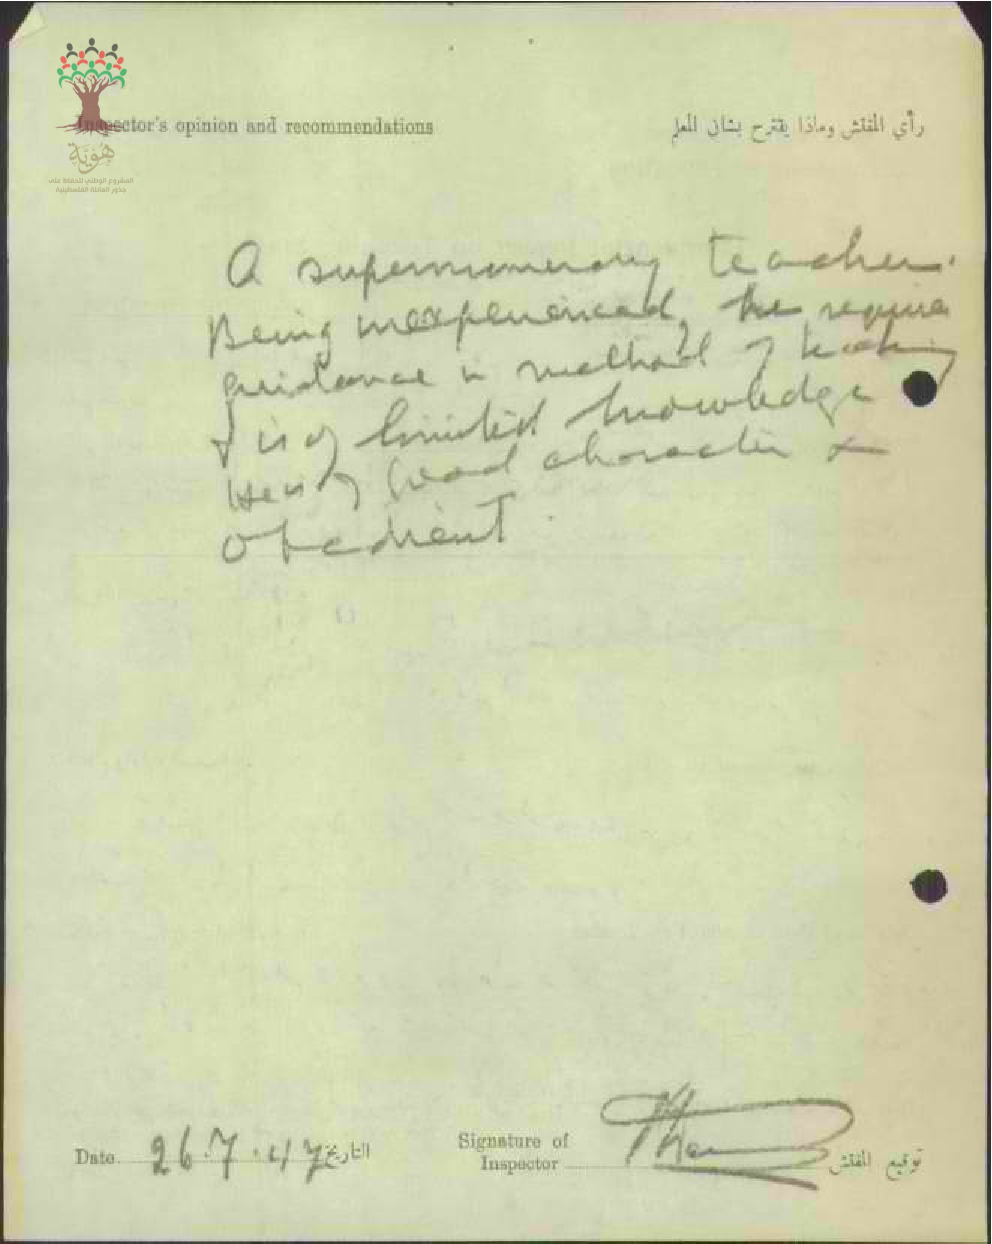 هوية
المشروع الوطني للحفاظ على
جذور العائلة الفلسطينية
Inspector's opinion and recommendations
رأي المفتش وماذا يقترح بشان المعلم
A supernumerary teacher.
Being inexperienced, he requires
guidance in method of teaching
& is of limited knowledge
He is of good character &
obedient.
Date 26.7.47 التاريخ
Signature of
Inspector
توقيع المفتش